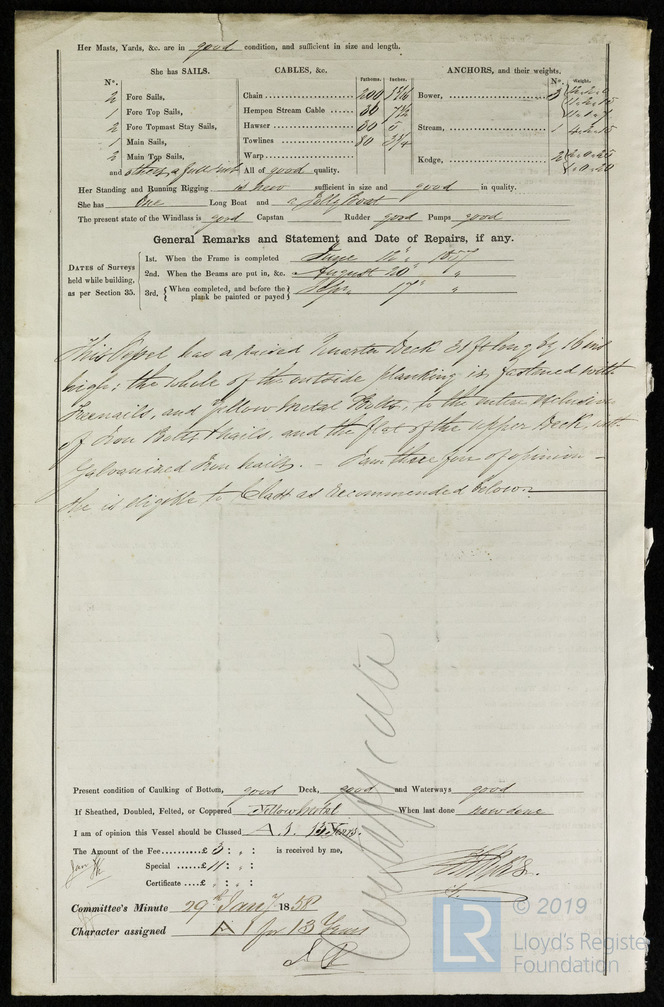 Her Masts, Yards, &c. are in good condition, and sufficient in size and length.
She has SAILS.
CABLES, &c.
ANCHORS, and their weights.
Nº.
Fathoms. Inches.
Nº. Weight.
2 Fore Sails,
1 Fore Top Sails,
2 Fore Topmast Stay Sails,
1 Main Sails,
2 Main Top Sails,
and others, a full suit
Chain 200 1 5/16
Hempen Stream Cable 80 7 1/2
Hawser 80 5
Towlines 80 3 3/4
Warp
All of good quality.
Bower, 3
Stream, 1 4.2.15
Kedge, 2 2.0.25
1.0.20
Her Standing and Running Rigging is new sufficient in size and good in quality.
She has One Long Boat and a Jolly Boat
The present state of the Windlass is good Capstan Rudder good Pumps good
General Remarks and Statement and Date of Repairs, if any.
DATES of Surveys held while building, as per Section 35.
1st. When the Frame is completed June 1857
2nd. When the Beams are put in, &c. August 20th "
3rd, { When completed, and before the plank be painted or payed } 17th "
This Vessel has a raised Quarter Deck 31 ft long by 16 ins
high; the whole of the outside planking is fastened with
Treenails, and Yellow Metal Bolts, to the entire exclusion
of Iron Bolts & nails, and the flat of the upper Deck, with
Galvanized Iron nails. – I am therefore of opinion –
She is eligible to Class as recommended below.
Present condition of Caulking of Bottom, good Deck, good and Waterways good
If Sheathed, Doubled, Felted, or Coppered Yellow Metal When last done now done
I am of opinion this Vessel should be Classed A 1. 13 Years.
The Amount of the Fee £ 5 : " : is received by me,
Special £ 11 : " :
Certificate £ " : " :
Committee's Minute 29th Jany 1858
Character assigned A 1 for 13 Years
LR
© 2019
Lloyd's Register
Foundation